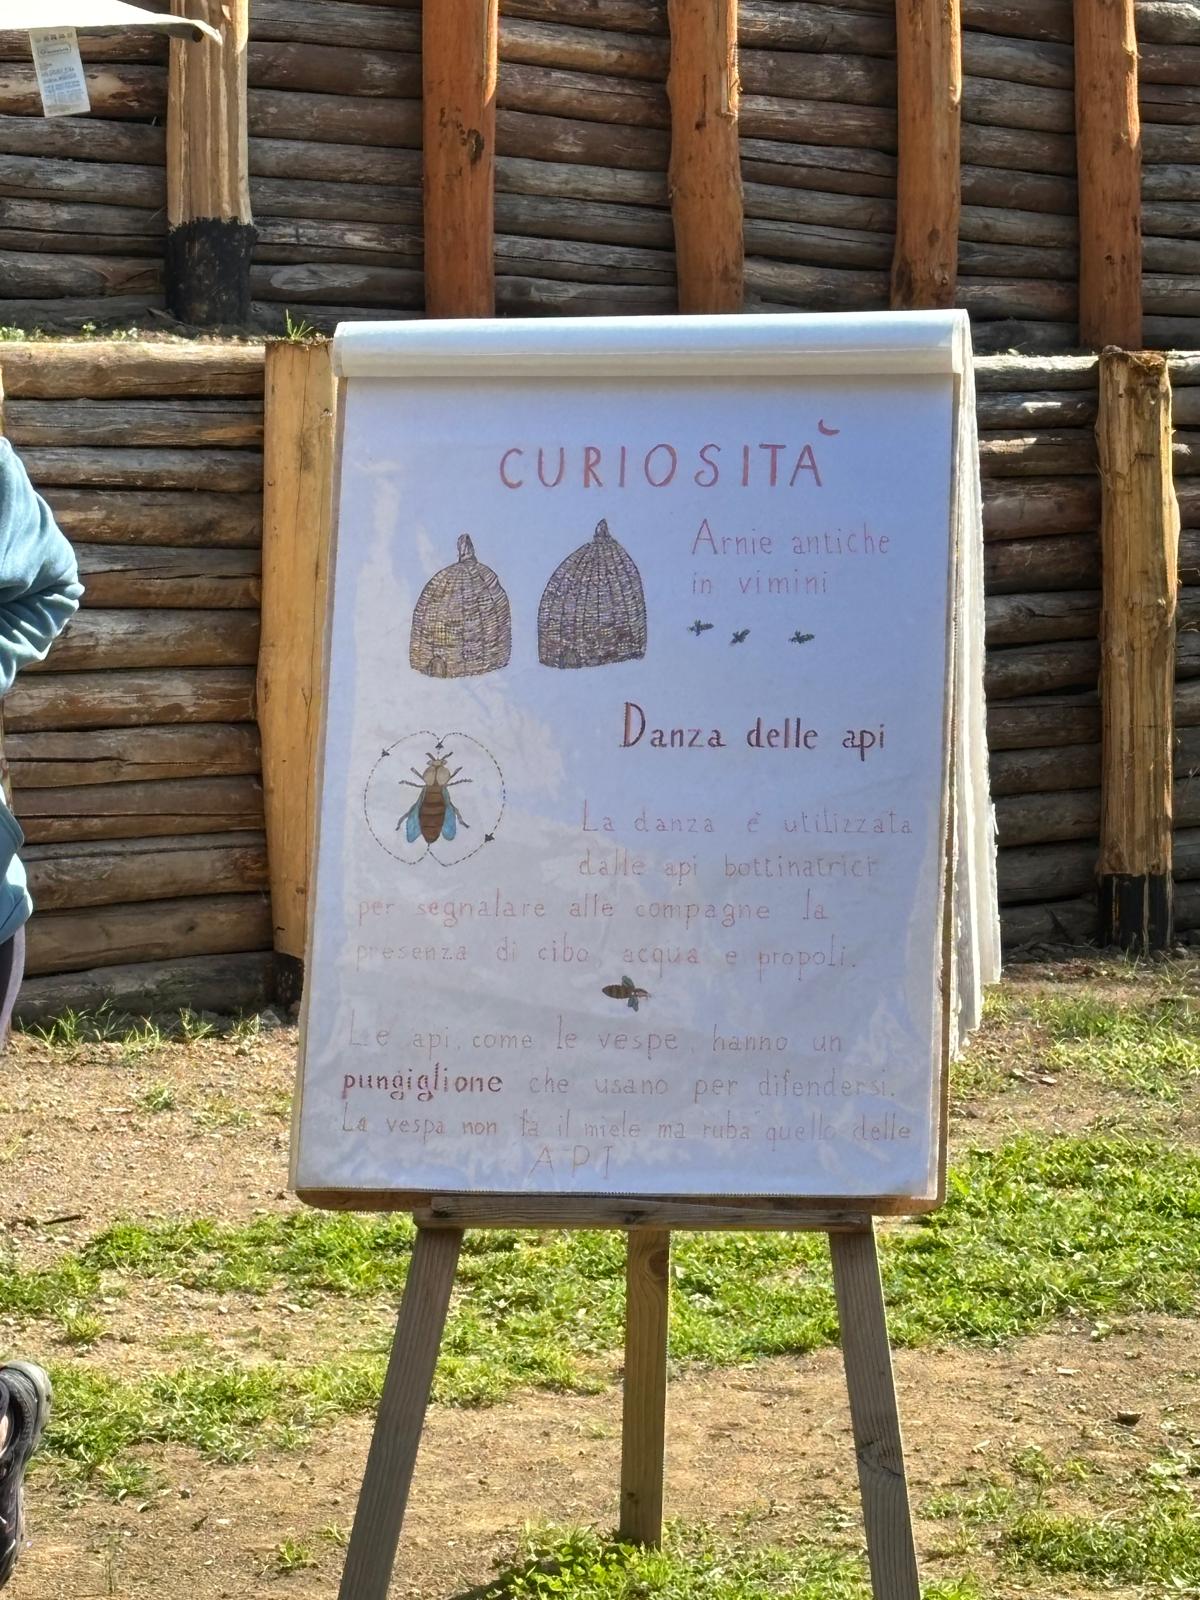 CURIOSITÀ
Arnie antiche
in vimini
Danza delle api
La danza è utilizzata
dalle api bottinatrici
per segnalare alle compagne la
presenza di cibo, acqua e propoli.
Le api, come le vespe, hanno un
pungiglione che usano per difendersi.
La vespa non fa il miele ma ruba quello delle
API